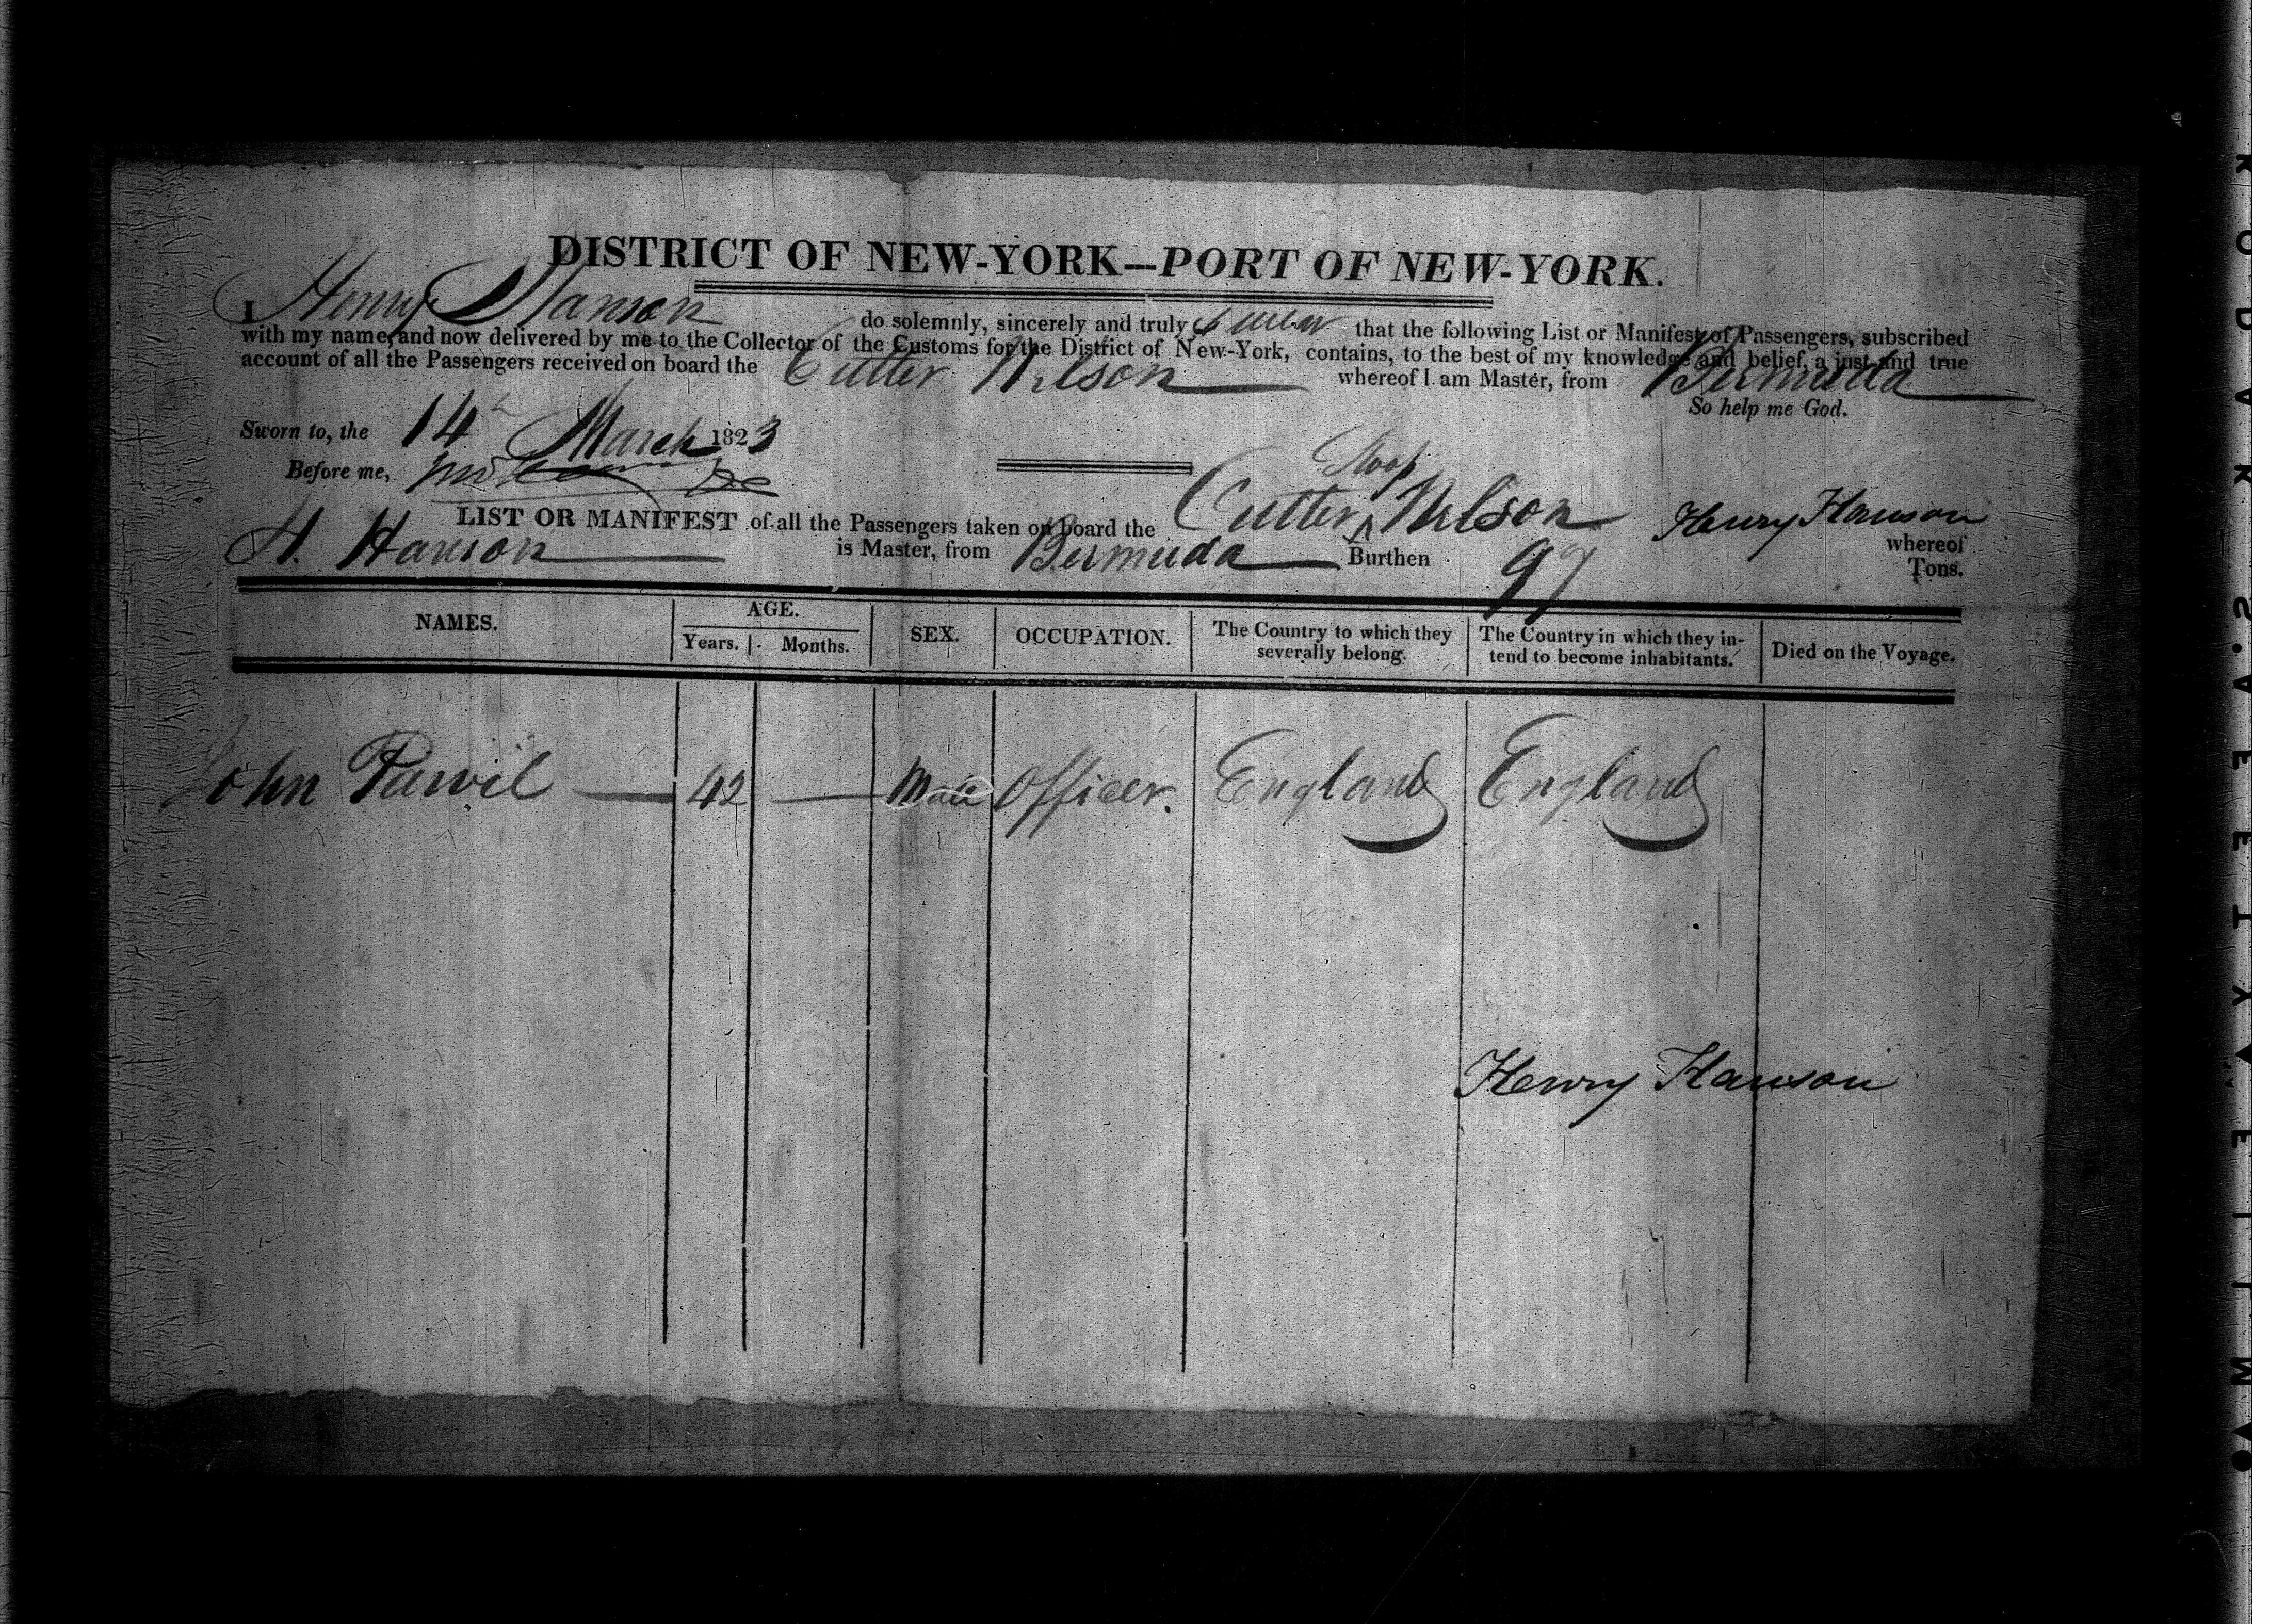 DISTRICT OF NEW-YORK—PORT OF NEW-YORK.
I Henry Hanson do solemnly, sincerely and truly swear that the following List or Manifest of Passengers, subscribed
with my name, and now delivered by me to the Collector of the Customs for the District of New-York, contains, to the best of my knowledge and belief, a just and true
account of all the Passengers received on board the Cutter Nelson whereof I am Master, from Bermuda
So help me God.
Sworn to, the 14th March 1823
Before me,
Sloop
LIST OR MANIFEST of all the Passengers taken on board the Cutter Nelson Henry Hanson whereof
H. Hanson is Master, from Bermuda Burthen 97 Tons.
NAMES. AGE. Years. Months. SEX. OCCUPATION. The Country to which they severally belong. The Country in which they intend to become inhabitants. Died on the Voyage.
John 42 Male Officer. England England
Henry Hanson
KODAK S.AFETY FILM